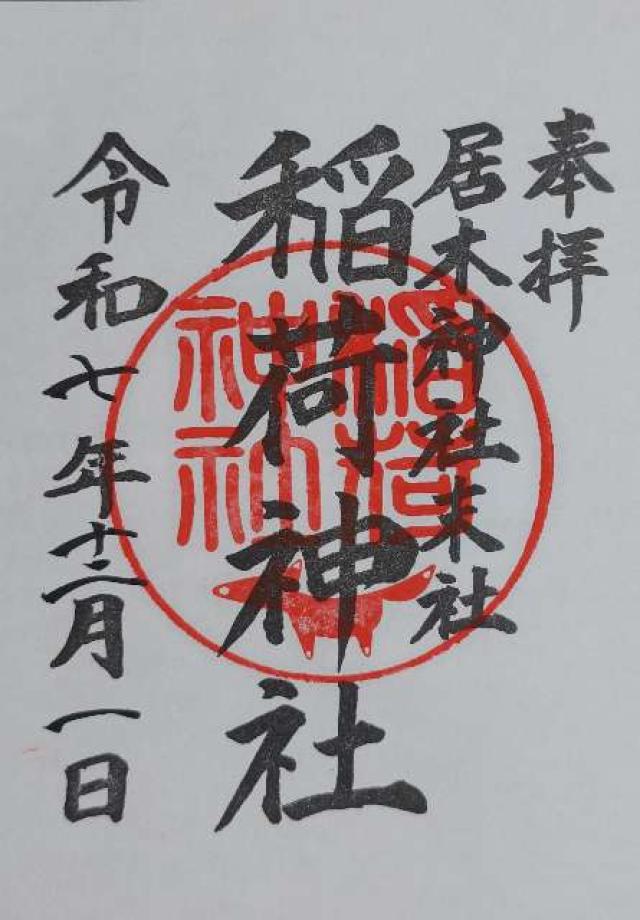 奉拝
居木神社末社
稲荷神社
稲荷神社
令和七年十二月一日